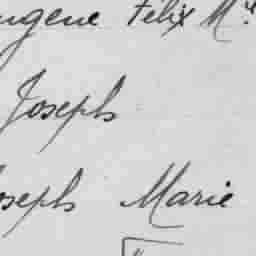 ugene Felix M.ie
Joseph
oseph Marie